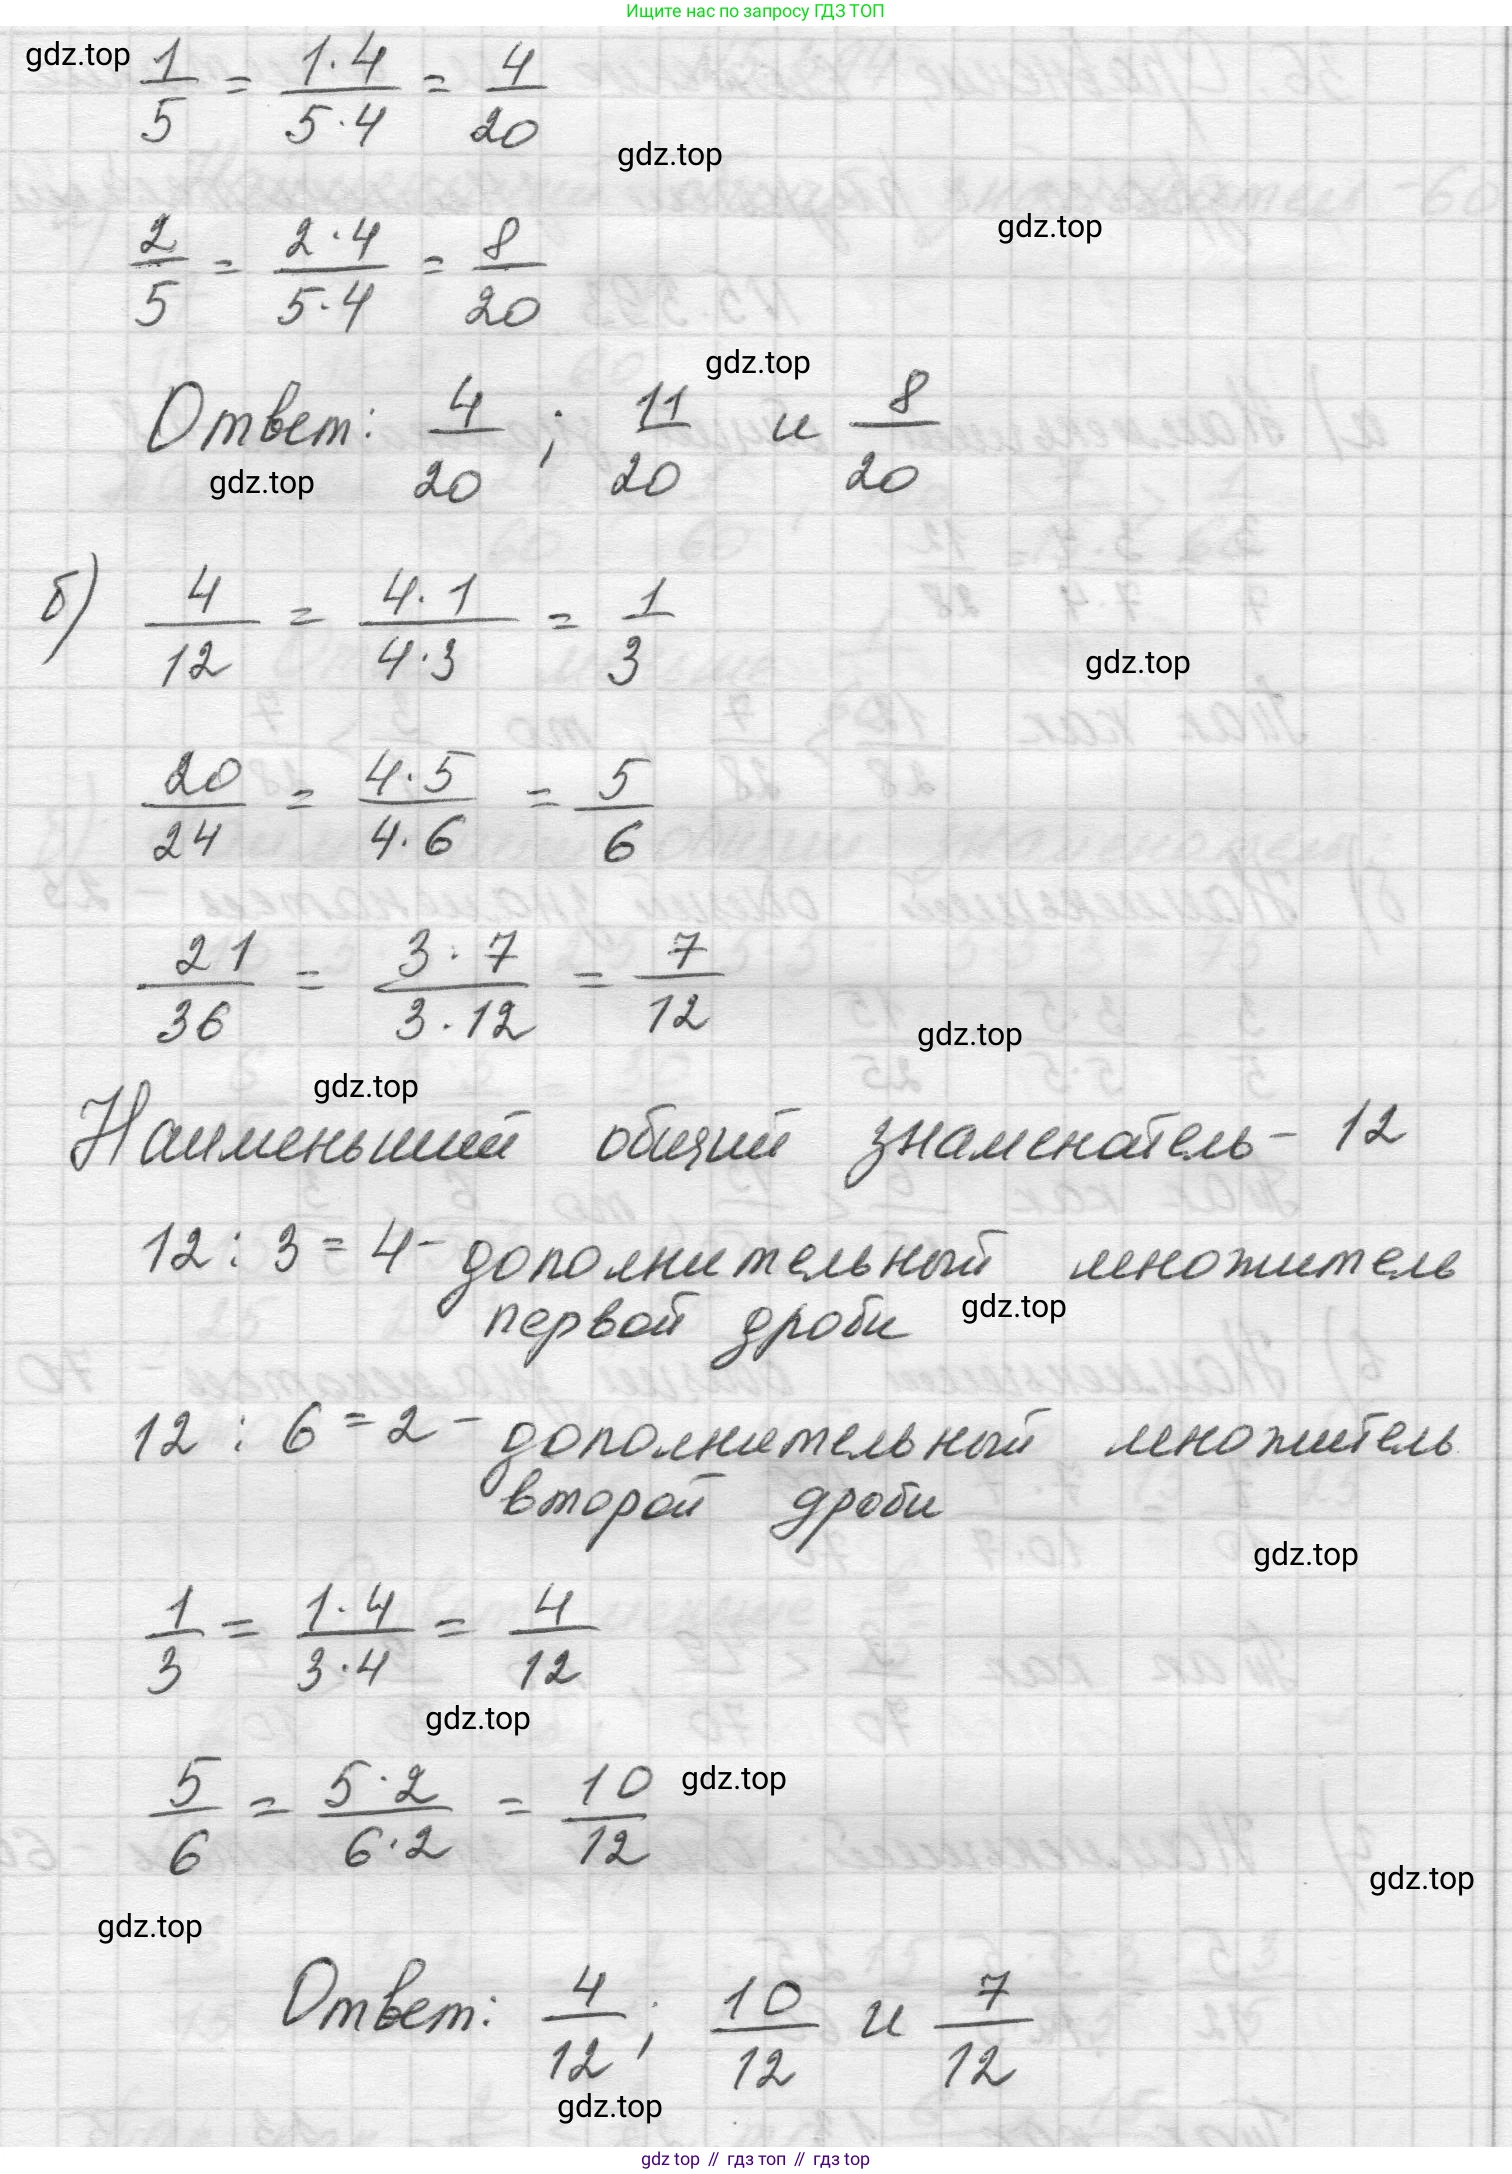 Ищите нас по запросу ГДЗ ТОП
gdz.top
1/5 = 1·4/5·4 = 4/20
gdz.top
gdz.top
2/5 = 2·4/5·4 = 8/20
gdz.top
Ответ: 4/20 ; 11/20 и 8/20
gdz.top
б) 4/12 = 4·1/4·3 = 1/3
gdz.top
20/24 = 4·5/4·6 = 5/6
21/36 = 3·7/3·12 = 7/12
gdz.top
gdz.top
Наименьший общий знаменатель - 12
12 : 3 = 4 - дополнительный множитель
первой дроби
gdz.top
12 : 6 = 2 - дополнительный множитель
второй дроби
gdz.top
1/3 = 1·4/3·4 = 4/12
gdz.top
5/6 = 5·2/6·2 = 10/12
gdz.top
gdz.top
gdz.top
Ответ: 4/12 ; 10/12 и 7/12
gdz.top
gdz top // гдз топ // гдз top